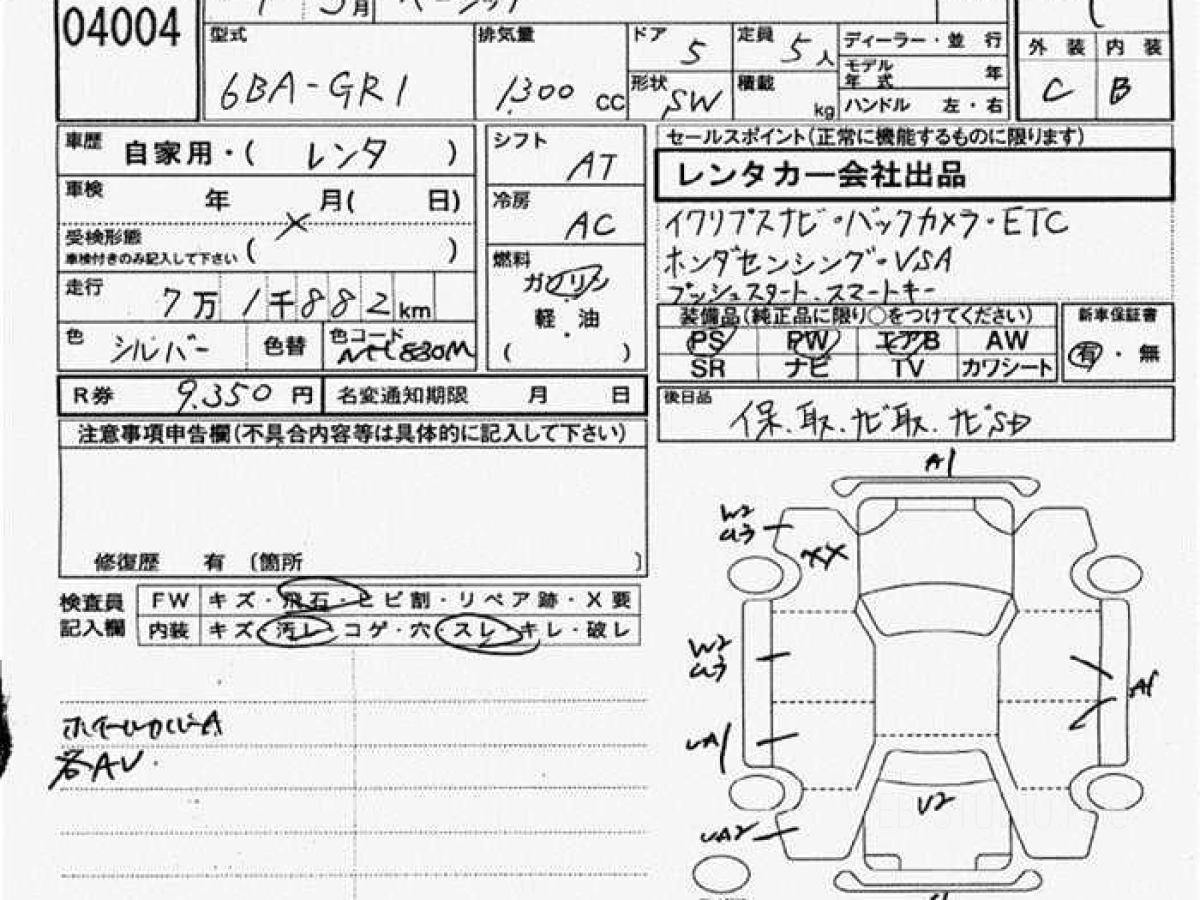 04004
型式
6BA-GR1
排気量
1300 cc
ドア 5
定員 5人
形状 SW
積載 kg
ディーラー・並 行
モデル年式 年
ハンドル 左・右
外 装 内 装
C B
車歴 自家用・( レンタ )
車検 年 月( 日)
受検形態
車検付きのみ記入して下さい ( )
走行 7万1千882km
色 シルバー 色替 色コード
シフト AT
冷房 AC
燃料 ガソリン
軽・油
( )
セールスポイント(正常に機能するものに限ります)
レンタカー会社出品
イクリプスナビ・バックカメラ・ETC
ホンダセンシング・VSA
プッシュスタート、スマートキー
装備品(純正品に限り○をつけてください)
PS PW エアB AW
SR ナビ TV カワシート
新車保証書
有・無
R券 9.350円 名変通知期限 月 日
後日品 保.取.ナビ取.ナビSD
注意事項申告欄(不具合内容等は具体的に記入して下さい)
修復歴 有 〔箇所 〕
検査員記入欄
FW キズ・飛石・ヒビ割・リペア跡・X要
内装 キズ・汚レ・コゲ・穴・スレ・キレ・破レ
ホイールカバーA
各AU.
A1
W2
U3
XX
W2
U3
A1
UA1
UA2
U2